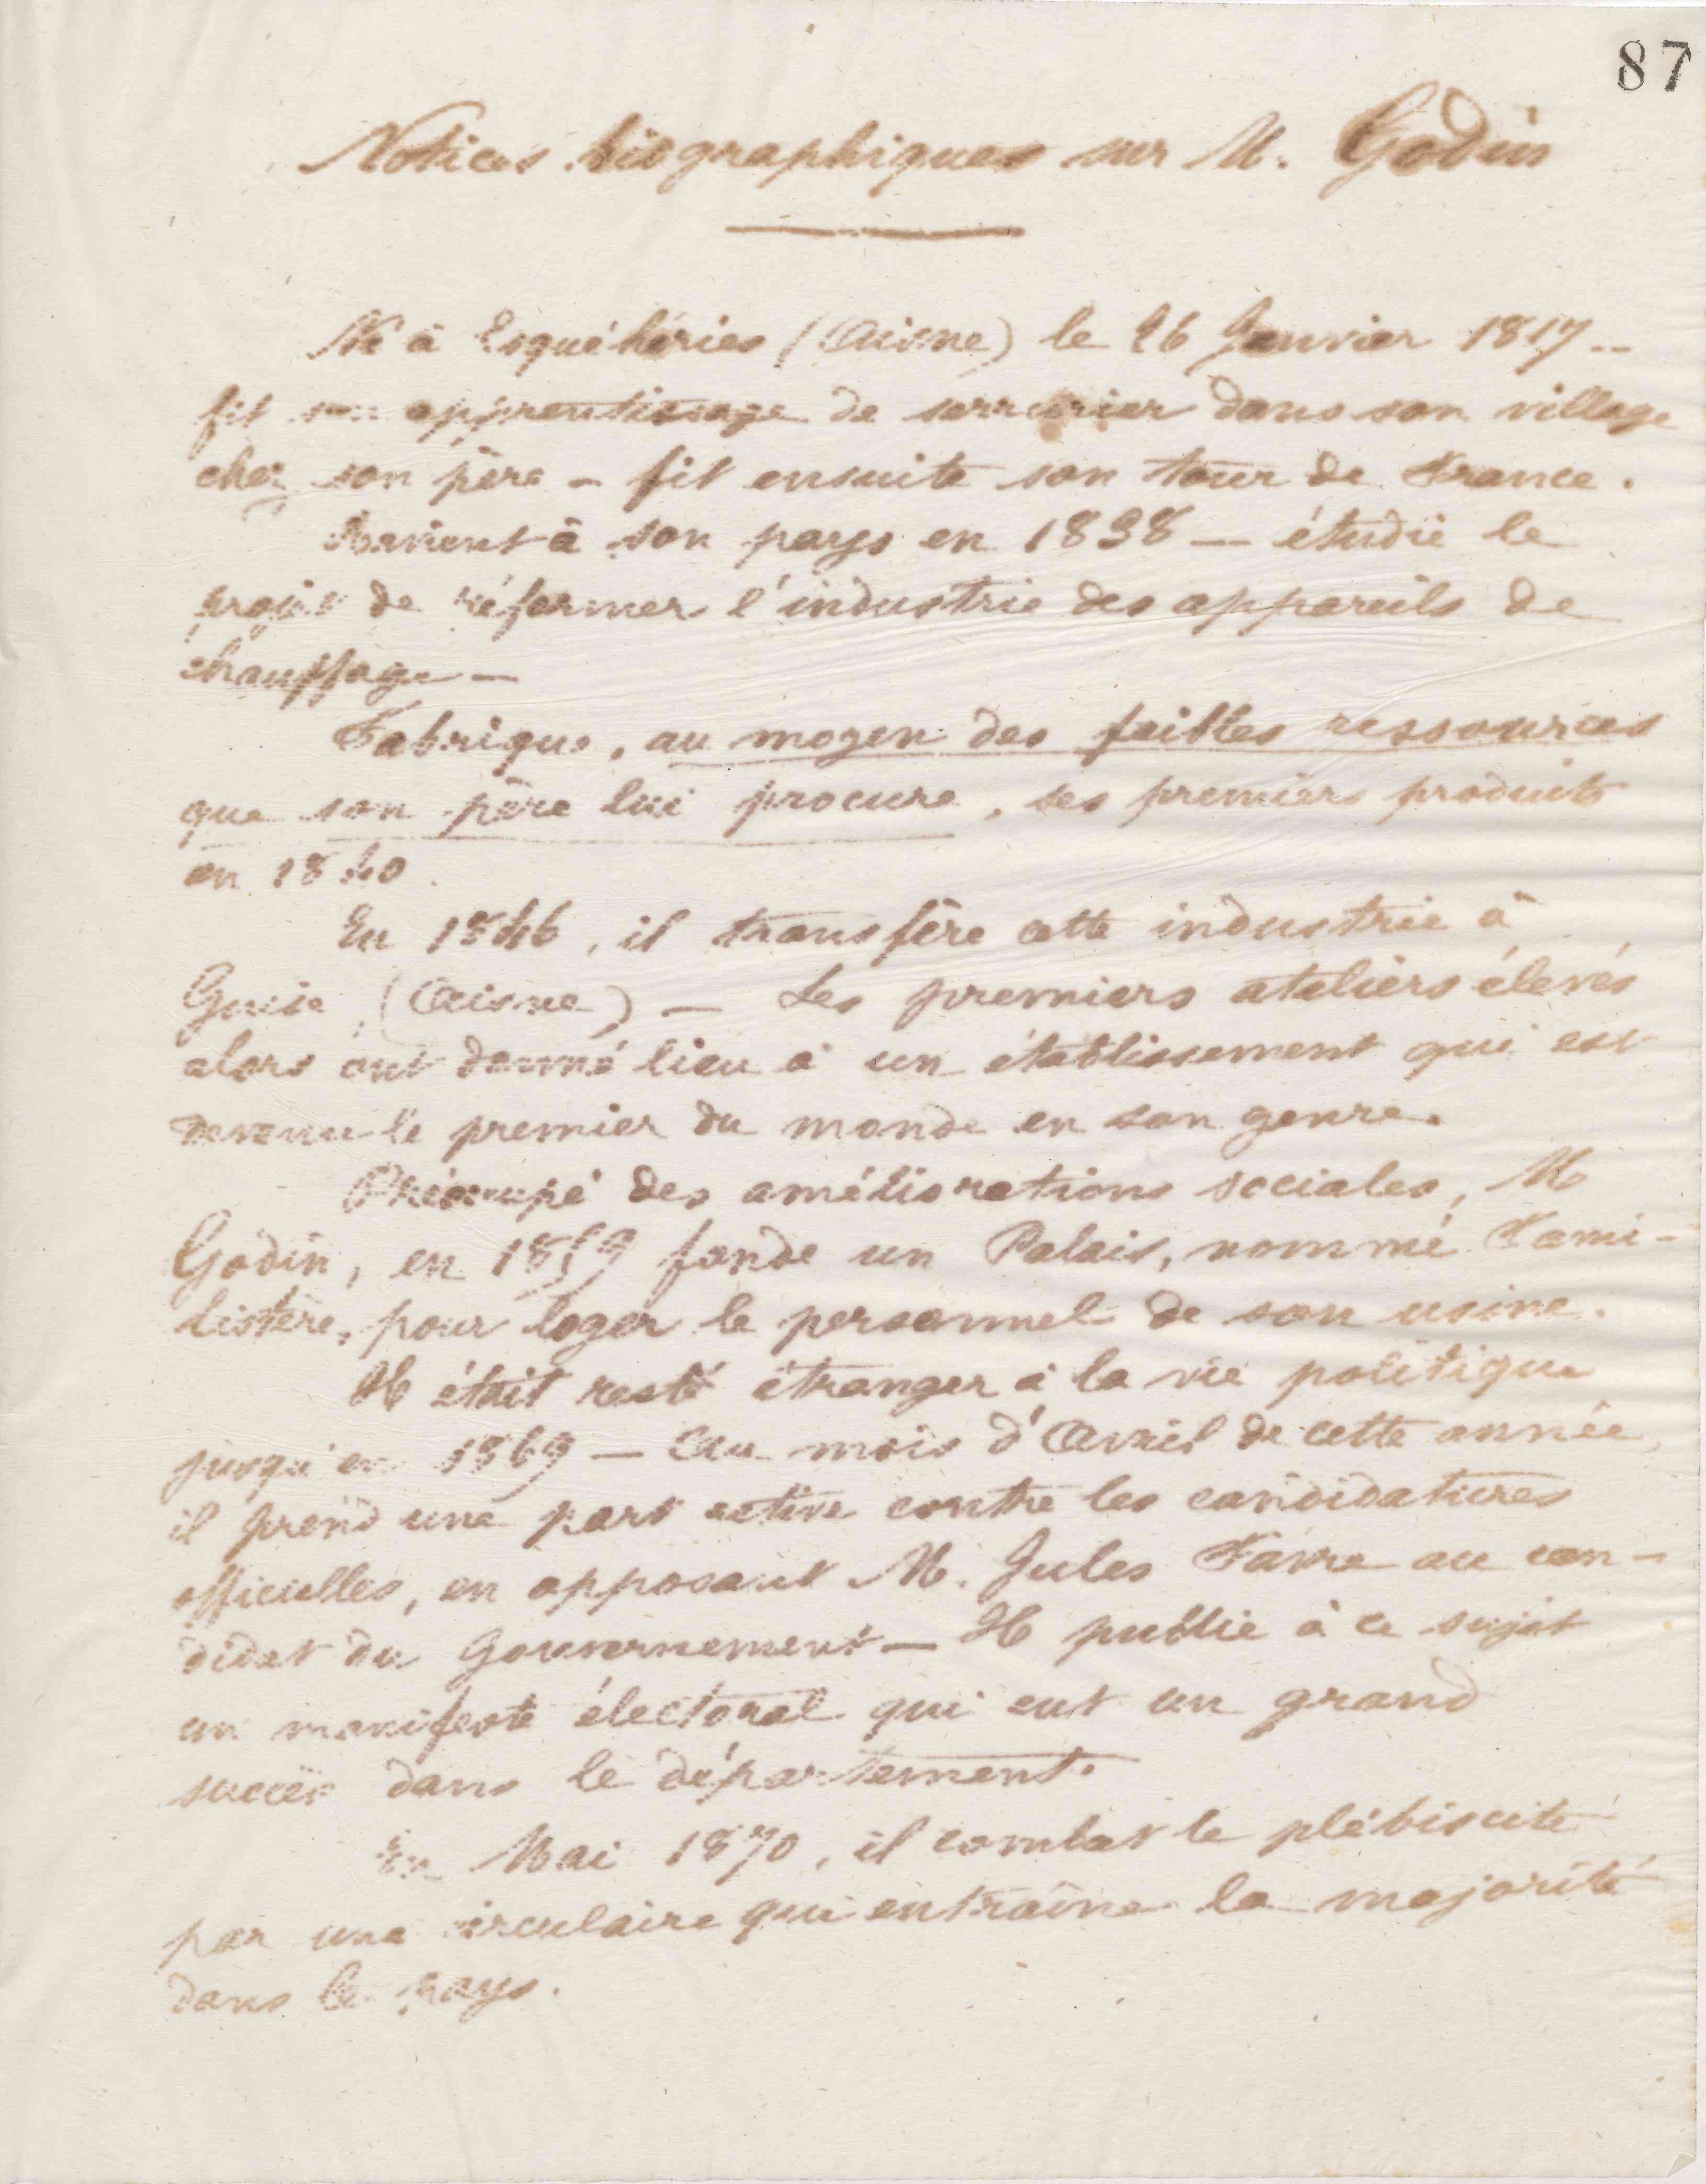 87
Notices biographiques sur M. Godin
Né à Esquéhéries (Aisne) le 26 Janvier 1817 _
fit son apprentissage de serrurier dans son village
chez son père _ fit ensuite son tour de France.
Revient à son pays en 1838 _ étudie le
projet de réformer l'industrie des appareils de
chauffage _
Fabrique, au moyen des faibles ressources
que son père lui procure, ses premiers produits
en 1840.
En 1846, il transfère cette industrie à
Guise (Aisne) _ Les premiers ateliers élevés
alors ont donné lieu à un établissement qui est
devenu le premier du monde en son genre.
Préoccupé des améliorations sociales, M
Godin, en 1859 fonde un Palais, nommé Fami-
listère, pour loger le personnel de son usine.
Il était resté étranger à la vie politique
jusqu'en 1869 _ Au mois d'Avril de cette année,
il prend une part active contre les candidatures
officielles, en opposant M. Jules Favre au can-
didat du Gouvernement _ Il publie à ce sujet
un manifeste électoral qui eut un grand
succès dans le département.
En Mai 1870, il combat le plébiscite
par une circulaire qui entraîne la majorité
dans le pays.